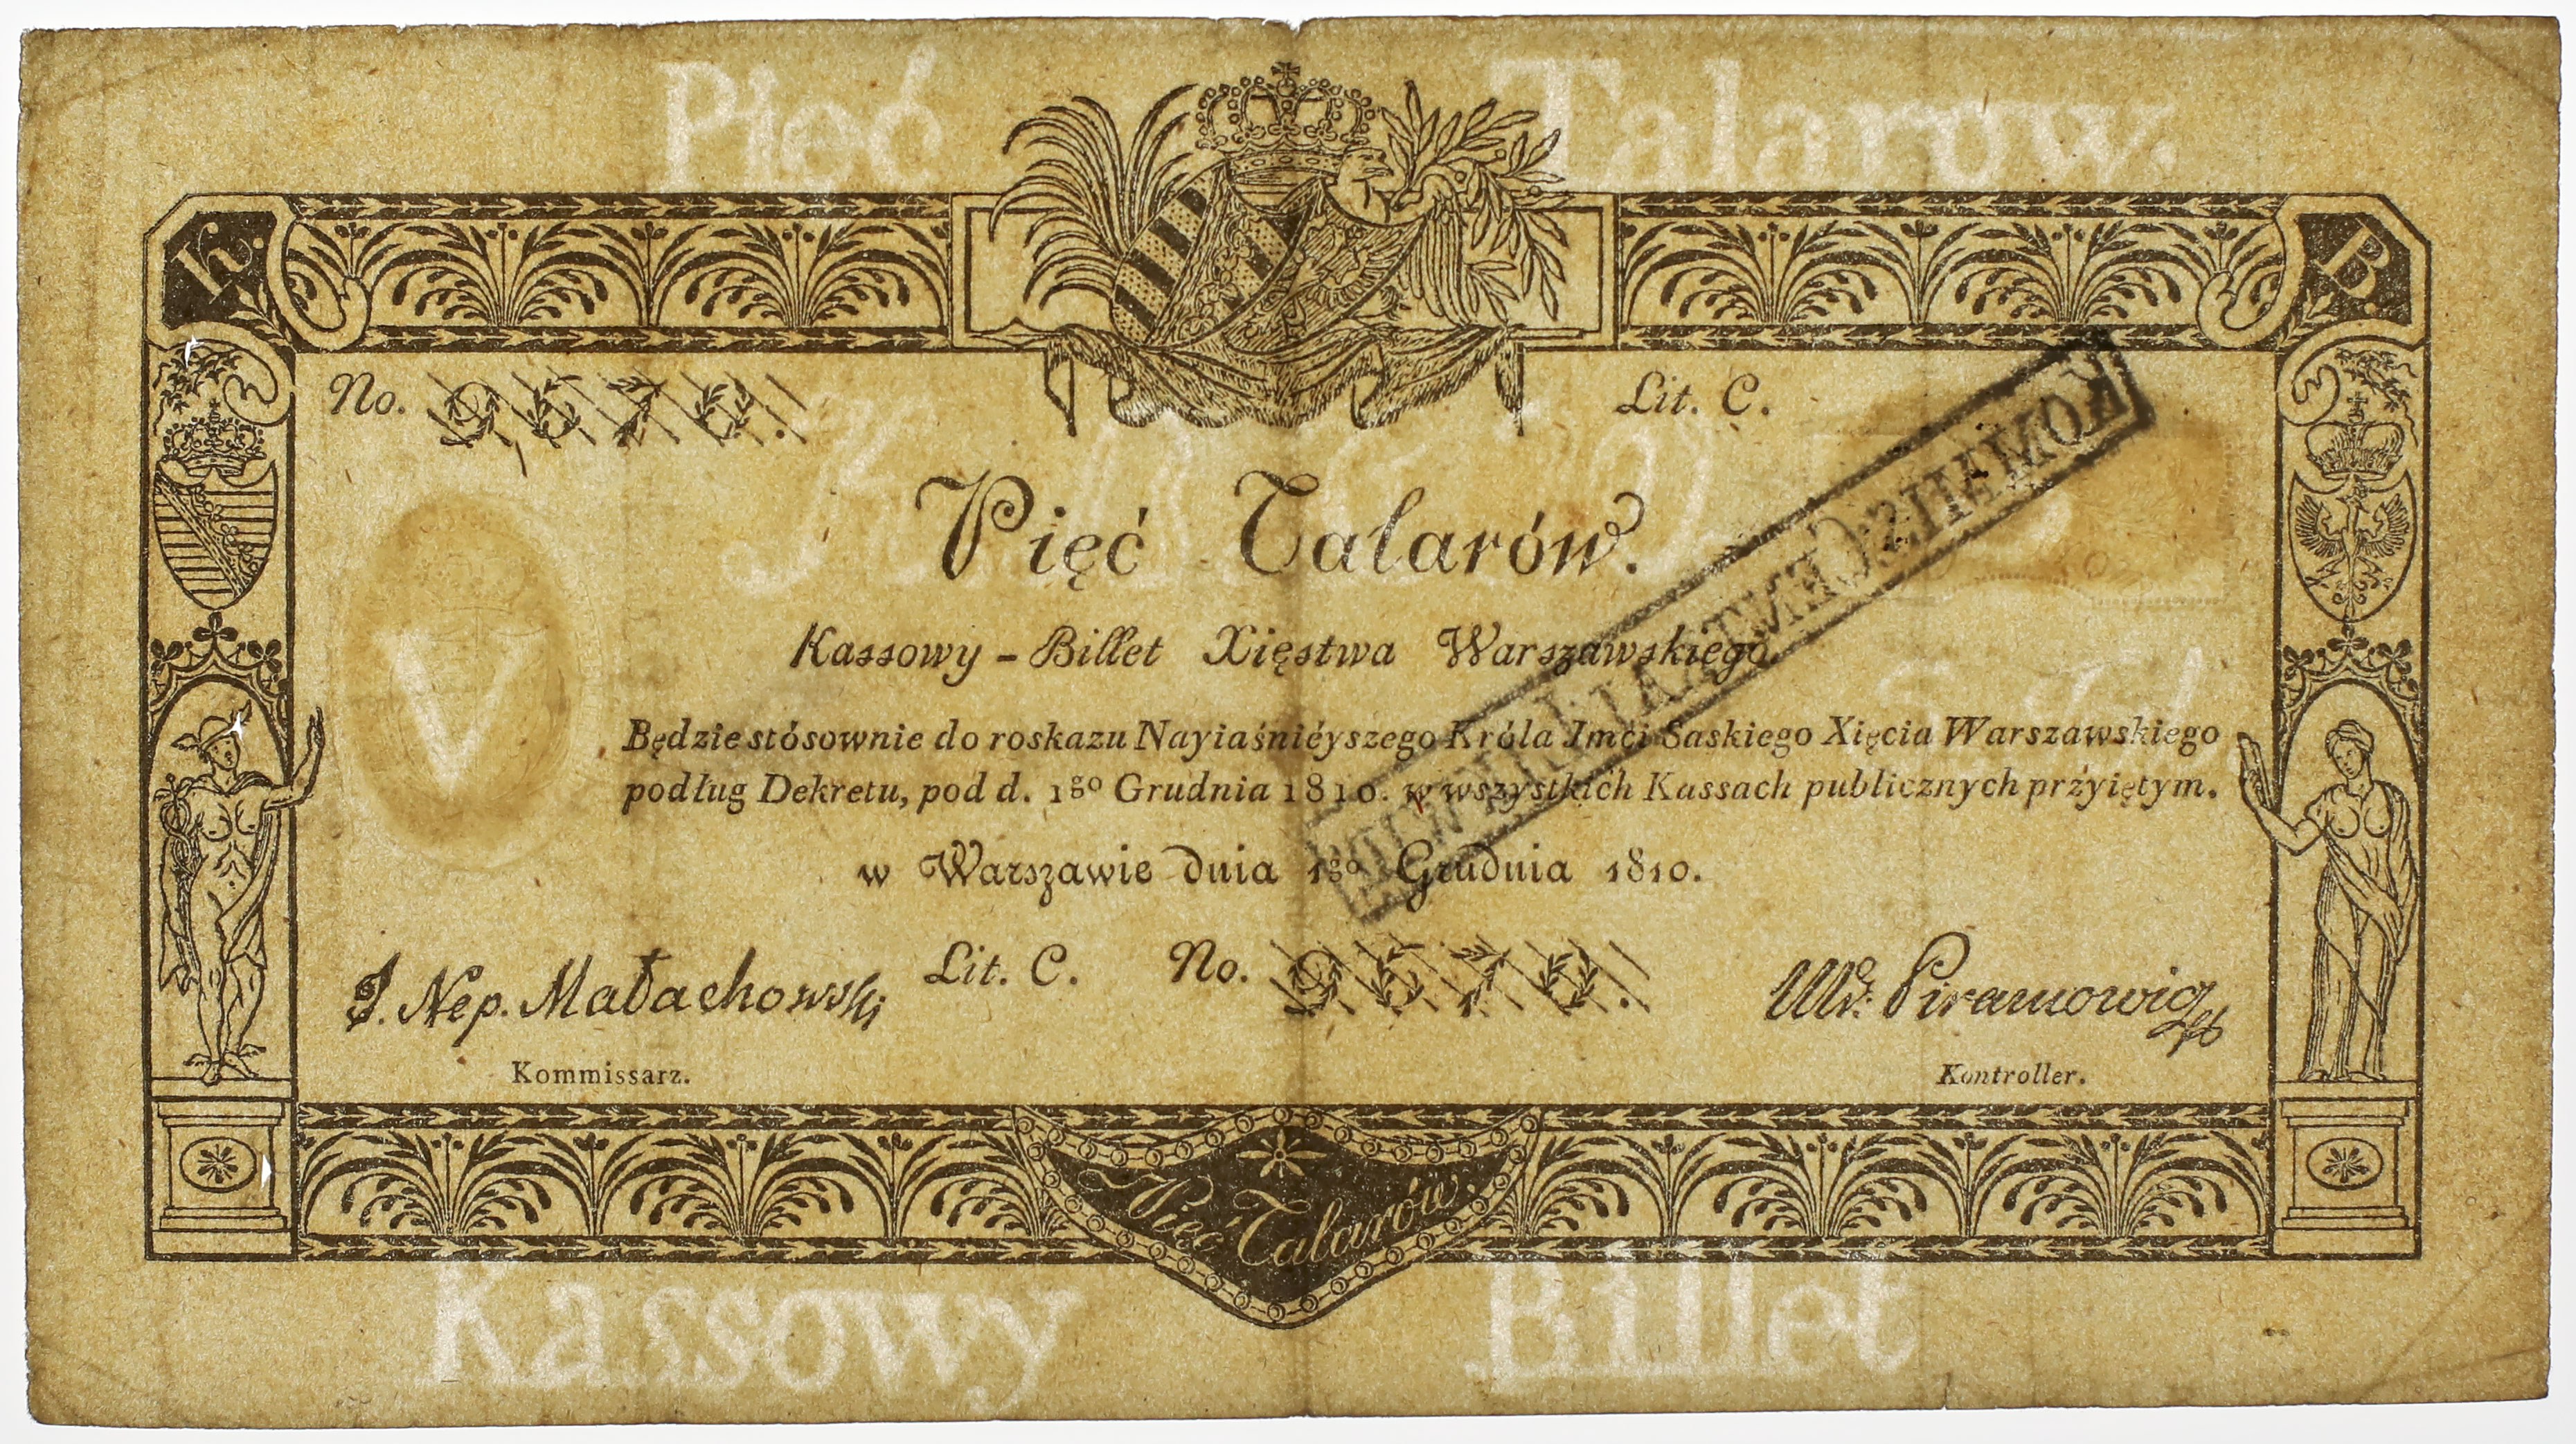 Pięć Talarow.
K. B.
No. 9,676. Lit. C.
Pięć Talarów.
Kassowy - Billet Xięstwa Warszawskiego.
V
Będzie stósownie do roskazu Nayiaśniéyszego Króla Imći Saskiego Xięcia Warszawskiego
podług Dekretu, pod d. 1go Grudnia 1810. w wszystkich Kassach publicznych przyiętym.
w Warszawie dnia 1go Grudnia 1810.
Lit. C. No. 9676.
J. Nep. Małachowski
Kommissarz.
Kontroller.
Pięć Talarów.
Kassowy Billet